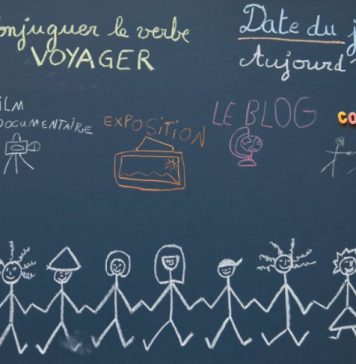 onjuguer le verbe
VOYAGER
Date du j
Aujourd'
ILM
DOCUMENTAIRE
EXPOSITION
LE BLOG
CO